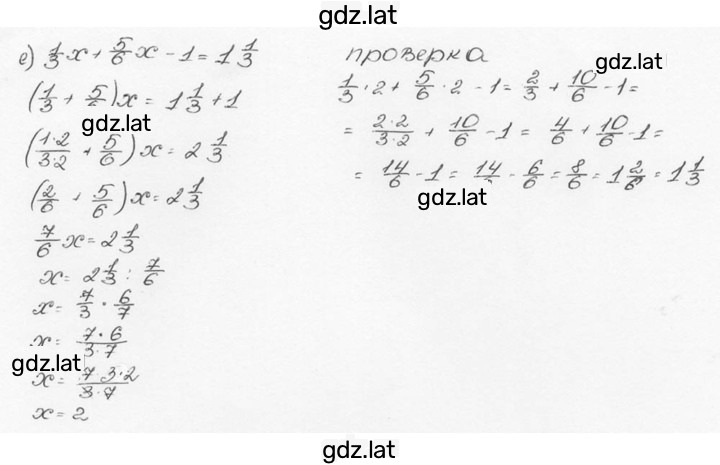 gdz.lat
е) 1/3 x + 5/6 x - 1 = 1 1/3
(1/3 + 5/6) x = 1 1/3 + 1
gdz.lat
(1·2/3·2 + 5/6) x = 2 1/3
(2/6 + 5/6) x = 2 1/3
7/6 x = 2 1/3
x = 2 1/3 : 7/6
x = 7/3 · 6/7
x = 7·6/3·7
gdz.lat
x = 7·3·2/3·7
x = 2
проверка
gdz.lat
1/3 · 2 + 5/6 · 2 - 1 = 2/3 + 10/6 - 1 =
= 2·2/3·2 + 10/6 - 1 = 4/6 + 10/6 - 1 =
= 14/6 - 1 = 14/6 - 6/6 = 8/6 = 1 2/6 = 1 1/3
gdz.lat
gdz.lat